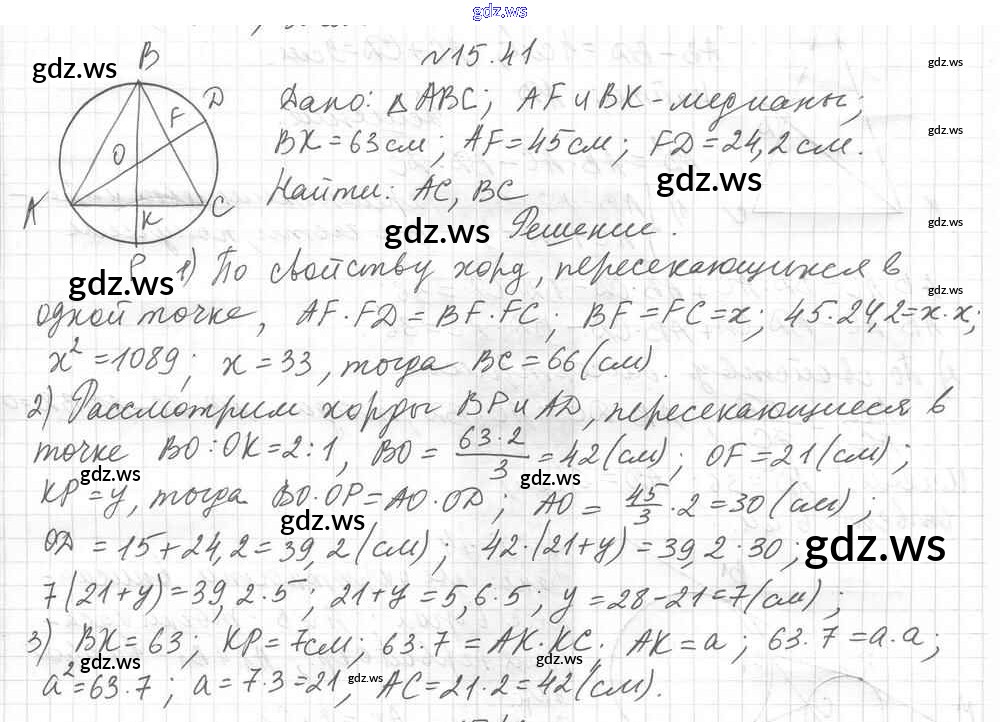 gdz.ws
№15.41
gdz.ws
gdz.ws
B
D
F
O
A
K
C
P
Дано: △ABC; AF и BK - медианы;
gdz.ws
BK = 63 см; AF = 45 см; FD = 24,2 см.
gdz.ws
Найти: AC, BC
gdz.ws
gdz.ws Решение.
gdz.ws
1) По свойству хорд, пересекающихся в
gdz.ws
одной точке, AF·FD = BF·FC; BF = FC = x; 45·24,2 = x·x;
x² = 1089; x = 33, тогда BC = 66 (см).
2) Рассмотрим хорды BP и AD, пересекающиеся в
точке BO:OK = 2:1, BO = 63·2/3 = 42 (см); OF = 21 (см);
gdz.ws
gdz.ws
KP = y, тогда BO·OP = AO·OD; AO = 45/3·2 = 30 (см);
gdz.ws
OD = 15 + 24,2 = 39,2 (см); 42·(21+y) = 39,2·30;
gdz.ws
7(21+y) = 39,2·5; 21+y = 5,6·5; y = 28-21 = 7 (см);
3) BK = 63; KP = 7см; 63·7 = AK·KC. AK = a; 63·7 = a·a;
gdz.ws
gdz.ws
a² = 63·7; a = 7·3 = 21, AC = 21·2 = 42 (см).
gdz.ws